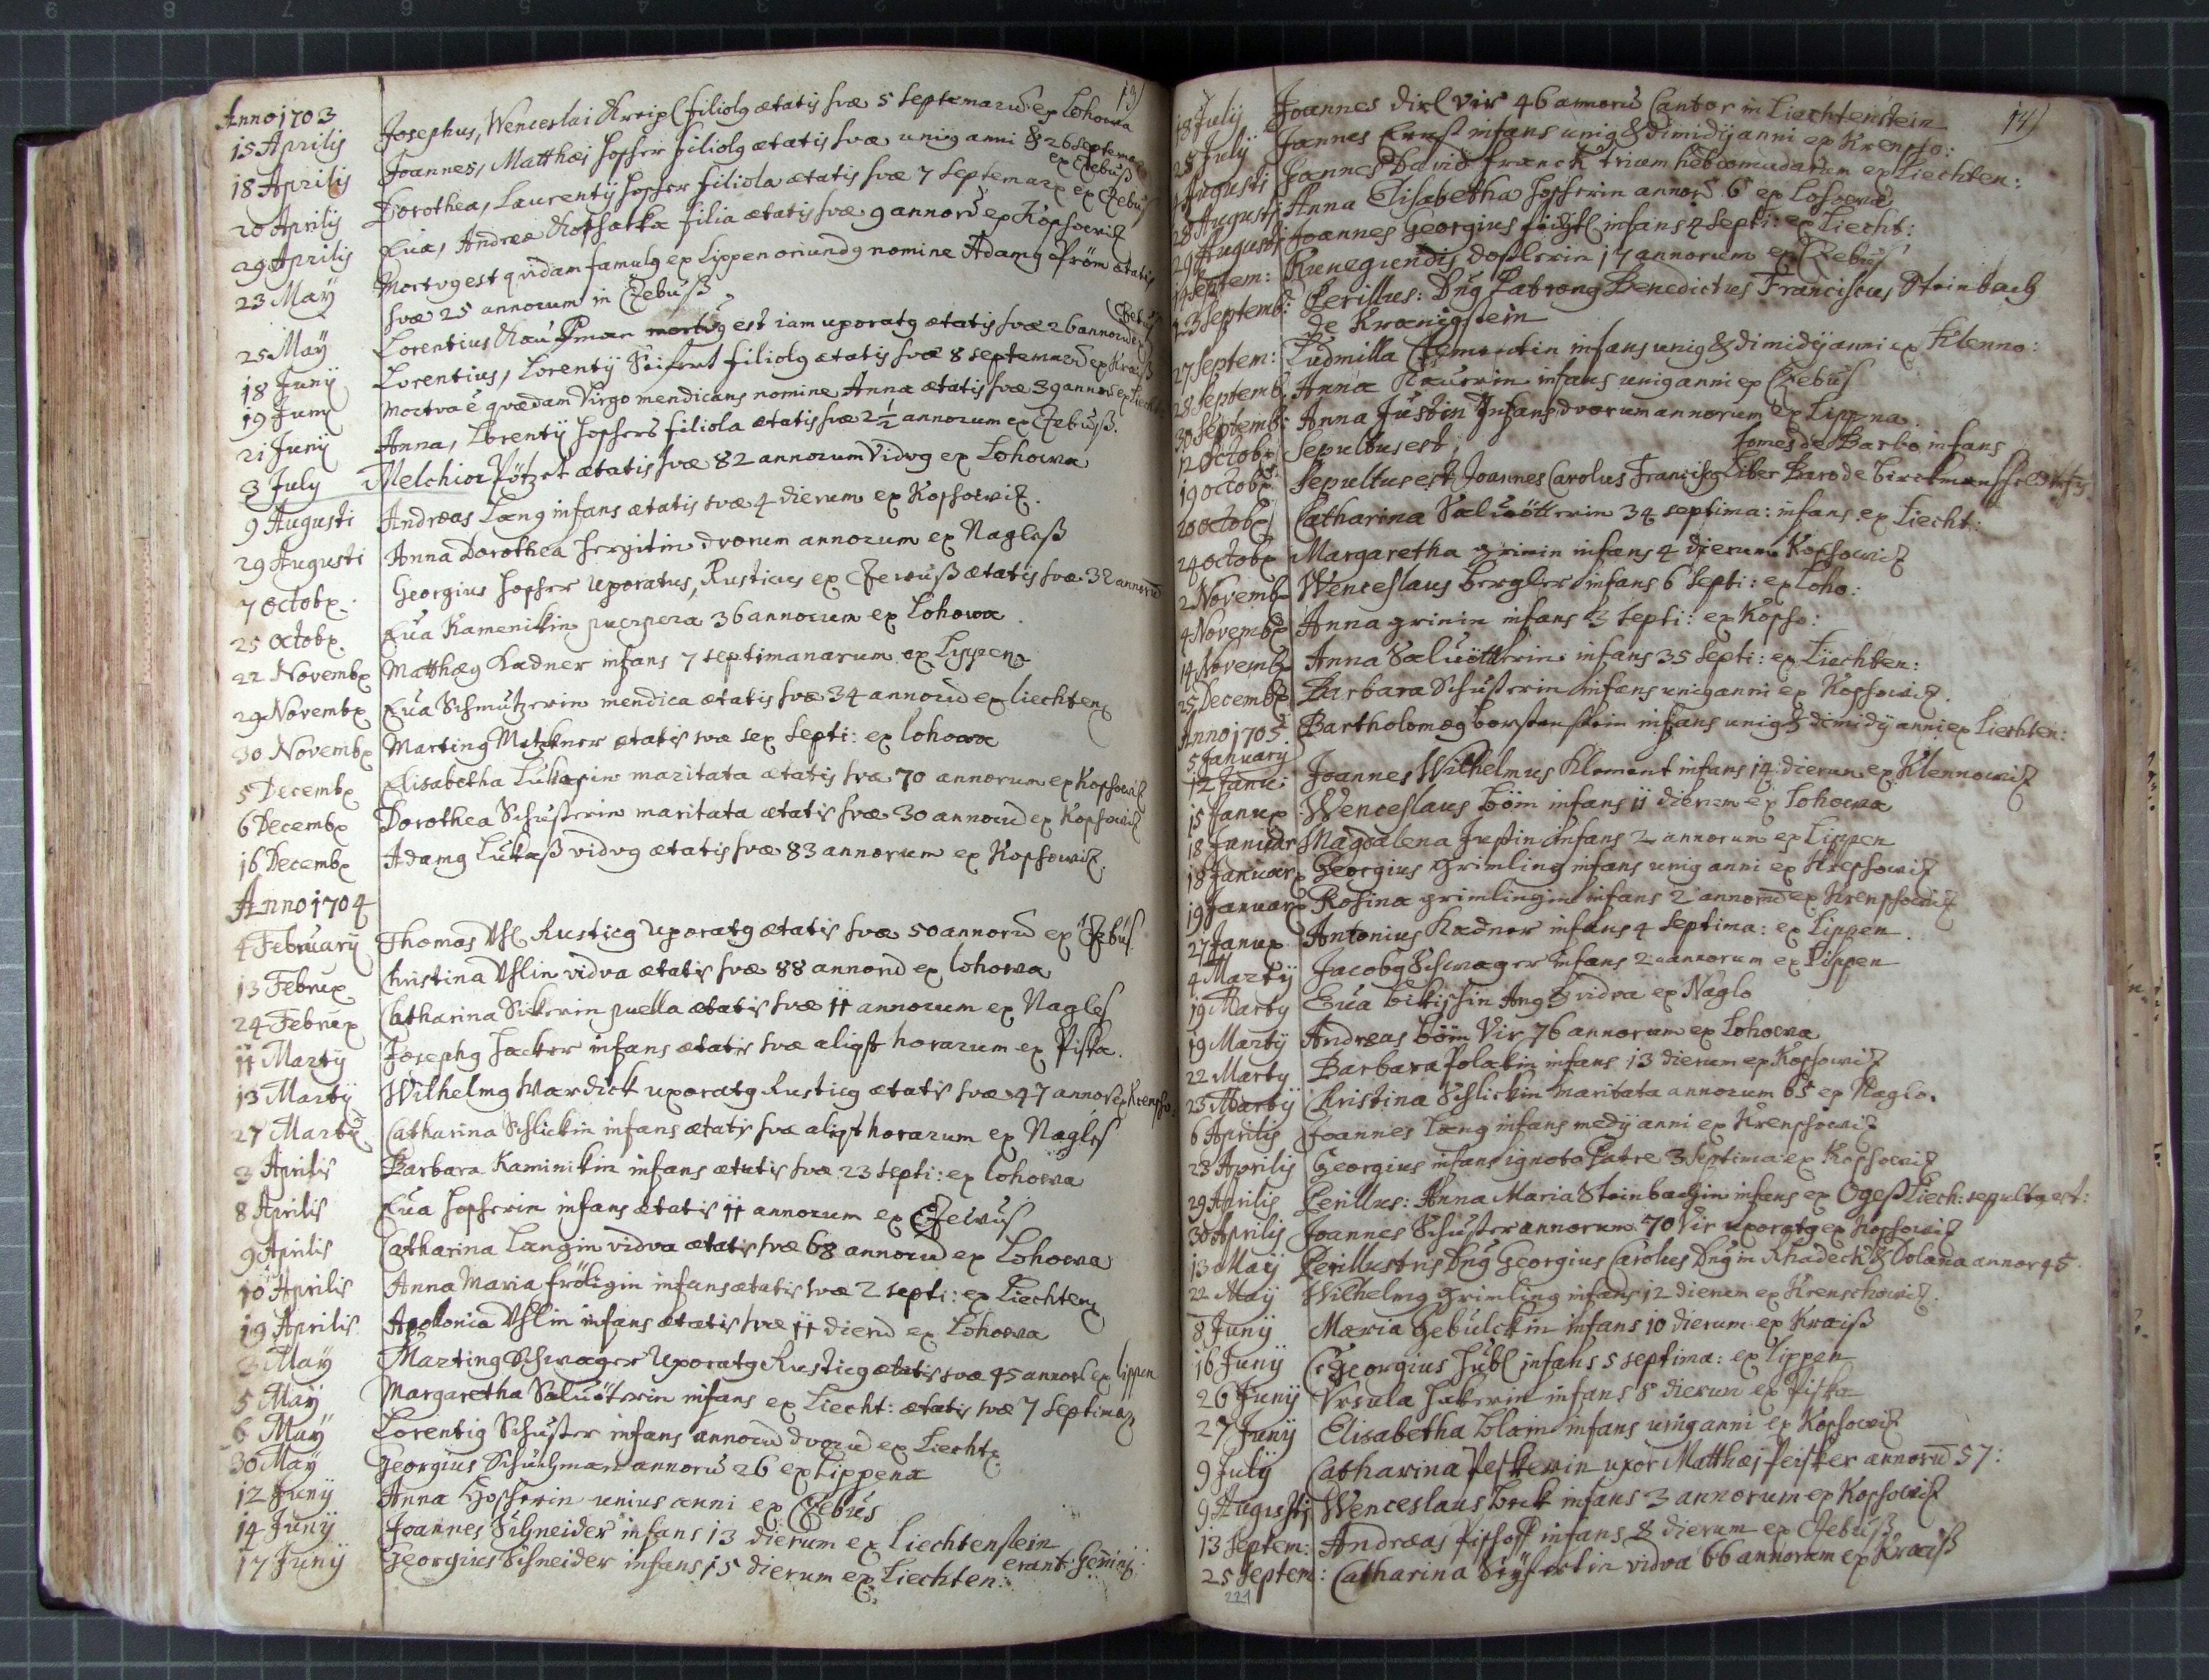 13)
Anno 1703
15 Aprilis Josephus, Wenceslai Kreipl filiolg ætatis svæ 5 septemarū ex Lohowa
18 Aprilis Joannes, Matthæi Hopher filiolg ætatis svæ unig anni & 26 septema
ex Czebuß
20 Aprilis Dorothea, Laurentij Hopher filiola ætatis svæ 7 septemarx ex Czebuß
29 Aprilis Eua, Andreæ filia ætatis svæ 9 annorū ex Kopsowitz
23 Maÿ Mortvg est qvidam famulg ex Lippen oriundg nomine Adamg ætatis
svæ 25 annorum in Czebuß
25 Maÿ Lorentius est iam uxoratg ætatis svæ 26 annorū ex
Czebuß
18 Junÿ Lorentius, Lorentÿ Seifert filiolg ætatis svæ 8 septemarū ex Kraiß
19 Junÿ Mortva ē qvædam Virgo mendicans nomine Anna ætatis svæ 39 annorū ex Liecht
21 Junÿ Anna, Lorentÿ Hophers filiola ætatis svæ 2½ annorum ex Czebuß.
3 July Melchior Pötzel ætatis svæ 82 annorum Vidvg ex Lohowa
9 Augusti Andreas Lang infans ætatis svæ 4 dierum ex Kopsowitz.
29 Augusti Anna Dorothea Hergitin dvorum annorum ex Nagleß
7 Octobx. Georgius Hopher Uxoratus, Rusticus ex Czewuß ætatis svæ 32 annorū
25 Octobx. Eua Kamenikin puerpera 36 annorum ex Lohowa.
22 Novembx Matthæg Kadner infans 7 septimanarum ex Lippen
29 Novembx Eua Schmutzerin mendica ætatis svæ 34 annorū ex Liechten
30 Novembx Marting Matzkner ætatis svæ sex septi: ex Lohowa
5 Decembx Elisabetha Lukasin maritata ætatis svæ 70 annorum ex Kopsowitz
6 Decembx Dorothea Schusterin maritata ætatis svæ 30 annorū ex Kopsowitz
16 Decembx Adamg Lukaß vidvg ætatis svæ 83 annorum ex Kopsowitz.
Anno 1704
4 February Thomas Vhl Rusticg Uxoratg ætatis svæ 50 annorū ex Czebuß
13 Februx Christina Vhlin vidva ætatis svæ 88 annorū ex Lohowa
24 Februx Catharina Sikerin puella ætatis svæ 11 annorum ex Nagles
11 Martÿ Josephg Hacker infans ætatis svæ aligst horarum ex Piska.
13 Martÿ Wilhelmg Wardick uxoratg Rusticg ætatis svæ 47 annor ex Krensho
27 Martÿ Catharina Schlickin infans ætatis svæ aligst horarum ex Nagles
3 Aprilis Barbara Kaminikin infans ætatis svæ 23 septi: ex Lohowa
8 Aprilis Eua Hopherin infans ætatis 11 annorum ex Czewuß
9 Aprilis Catharina Langin vidva ætatis svæ 68 annorū ex Lohowa
10 Aprilis Anna Maria Fröligin infans ætatis svæ 2 septi: ex Liechten
19 Aprilis Apollonia Vhlin infans ætatis svæ 11 dierū ex Lohowa
2 Maÿ Marting Schwager Uxoratg Rusticg ætatis svæ 45 annorū ex Lippen
5 Maÿ Margaretha infans ex Liecht: ætatis svæ 7 septimax
6 Maÿ Lorentig Schuster infans annorū dvorū ex Liecht
30 Maÿ Georgius Schuchman annorū 26 ex Lippena
12 Junÿ Anna Hopherin unius anni ex Czebus
14 Junÿ Joannes Schneider infans 13 dierum ex Liechtenstein
17 Junÿ Georgius Schneider infans 15 dierum ex Liechten: erant Gemini
14)
18 July Joannes Dixl Vir 46 annorū Cantor in Liechtenstein
25 July Joannes Ernst infans unig & dimidÿ anni ex Krensho:
Augusti Joannes David Franck trium hebdomadarum ex Liechten:
28 Augusti Anna Elisabetha Hopherin annorū 6 ex Lohowa
29 Augusti Joannes Georgius infans 4 septi: ex Liecht:
14 Septem: Kunegundis Doslerin 17 annorum ex Czebus
23 Septemb: Perillus: Dng Patrong Benedictus Franciscus Steinbach
de Kranigstein
27 Septem: Ludmilla Clementin infans unig & dimidÿ anni ex Klenno:
28 Septemb. Anna Kauerin infans unig anni ex Czebus
30 Septemb: Anna Justin Infans dvorum annorum ex Lippna.
12 Octobx Sepultus est, Comes de Barbo infans
19 Octobx Sepultus est Joannes Carolus Franciscg Liber Baro de
20 Octobx Catharina 34 septima: infans ex Liecht:
24 Octobx Margaretha Grimin infans 4 dierum Kopsowitz
2 Novemb Wenceslaus Bergler infans 6 septi: ex Loho:
4 Novembx Anna Grinin infans 3 septi: ex Kopso:
14 Novemb Anna infans 35 septi: ex Liechten:
25 Decembx Barbara Schusterin infans unig anni ex Kopsowitz.
Anno 1705
5 January Bartholomæg Borstenstein infans unig & dimidÿ anni ex Liechten:
12 Janu: Joannes Wilhelmus Klement infans 14 dierum ex Klennowitz
15 Janux Wenceslaus Böm infans 11 dierum ex Lohowa
18 Januar Magdalena Justin infans 2 annorum ex Lippen
18 Januarx Georgius Grimling infans unig anni ex Krepsowitz
19 Januarx Rosina Grimlingin infans 2 annorū ex Krenshowitz
27 Janux Antonius Kadner infans 4 septima: ex Lippen.
4 Martÿ Jacobg Schwager infans 2 annorum ex Lippen
19 Marty Eua vidva ex Naglo
19 Marty Andreas Böm Vir 76 annorum ex Lohowa
22 Marty Barbara Polakin infans 13 dierum ex Kopsowitz
23 Martÿ Christina Schlickin maritata annorum 65 ex Naglo.
6 Aprilis Joannes Lang infans medÿ anni ex Krenshowitz
23 Aprilis Georgius infans ignoto Patre 3 septima: ex Kopsowitz
29 Aprilis Perillus: Anna Maria Steinbachin infans ex Ogeß Liech: sepulta est:
30 Aprilis Joannes Schuster annorum 70 Vir uxoratg ex Kopsowitz
13 Maÿ Perillustris Dng Georgius Carolus Dng in Rhadeck & Dolana annor 45.
22 Maÿ Wilhelmg Grimling infans 12 dierum ex Krenschowitz.
8 Junÿ Maria Gebulckin infans 10 dierum ex Kraiß
16 Junÿ Georgius Hübl infans 5 septima: ex Lippen
26 Junÿ Vrsula Hakerin infans 8 dierum ex Piska
27 Junÿ Elisabetha infans unig anni ex Kopsowitz
9 July Catharina Peskerin uxor Matthæi Peisker annorū 57:
9 Augusti Wenceslaus Beck infans 3 annorum ex Kopsowitz
13 Septem: Andreas Pishoff infans 8 dierum ex Czebuß
25 Septem: Catharina Seÿfertin vidva 66 annorum ex Kraiß
224